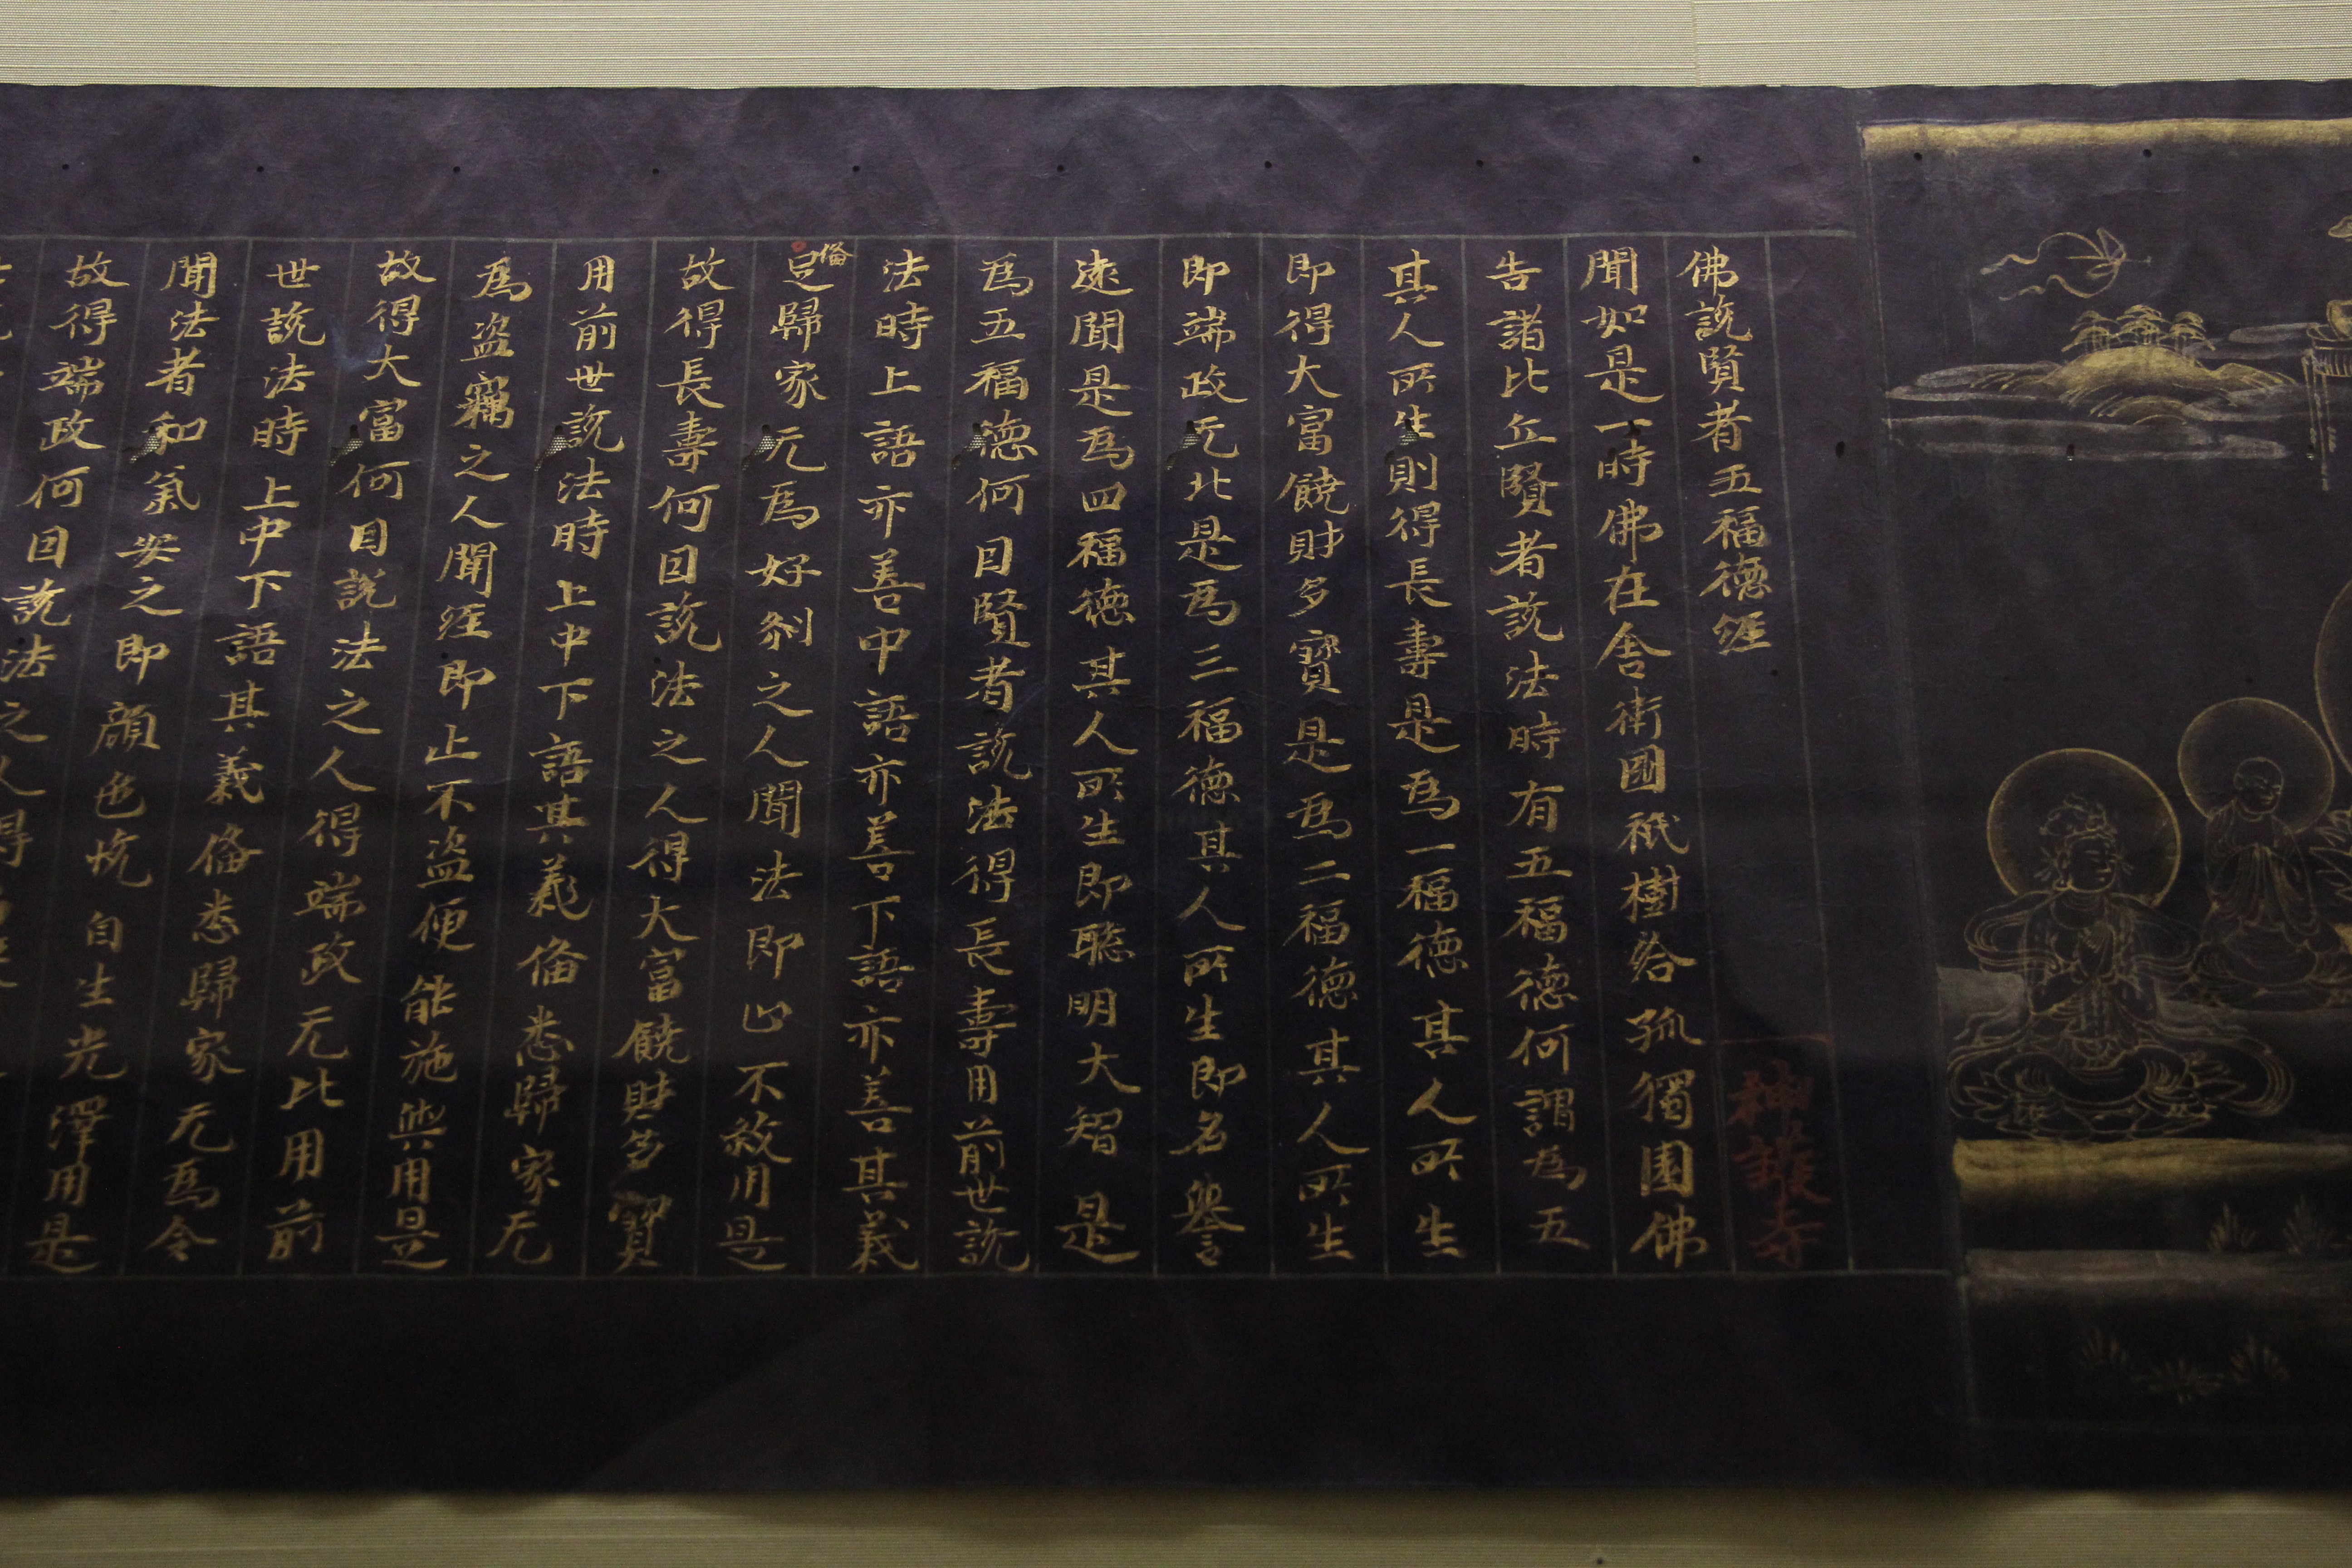 佛說賢者五福德經
神護寺
聞如是一時佛在舍衛國祇樹給孤獨園佛
告諸比丘賢者說法時有五福德何謂為五
其人所生則得長壽是為一福德其人所生
即得大富饒財多寶是為二福德其人所生
即端政无比是為三福德其人所生即名譽
遠聞是為四福德其人所生即聰明大智是
為五福德何因賢者說法得長壽用前世說
法時上語亦善中語亦善下語亦善其義
備
歸家无為好剎之人聞法即止不煞用是
故得長壽何因說法之人得大富饒財多寶
用前世說法時上中下語其義俻悉歸家无
為盜竊之人聞經即止不盜便能施與用是
故得大富何因說法之人得端政无比用前
世說法時上中下語其義俻悉歸家无為令
聞法者和氣安之即顏色恱自生光澤用是
故得端政何因說法之人得